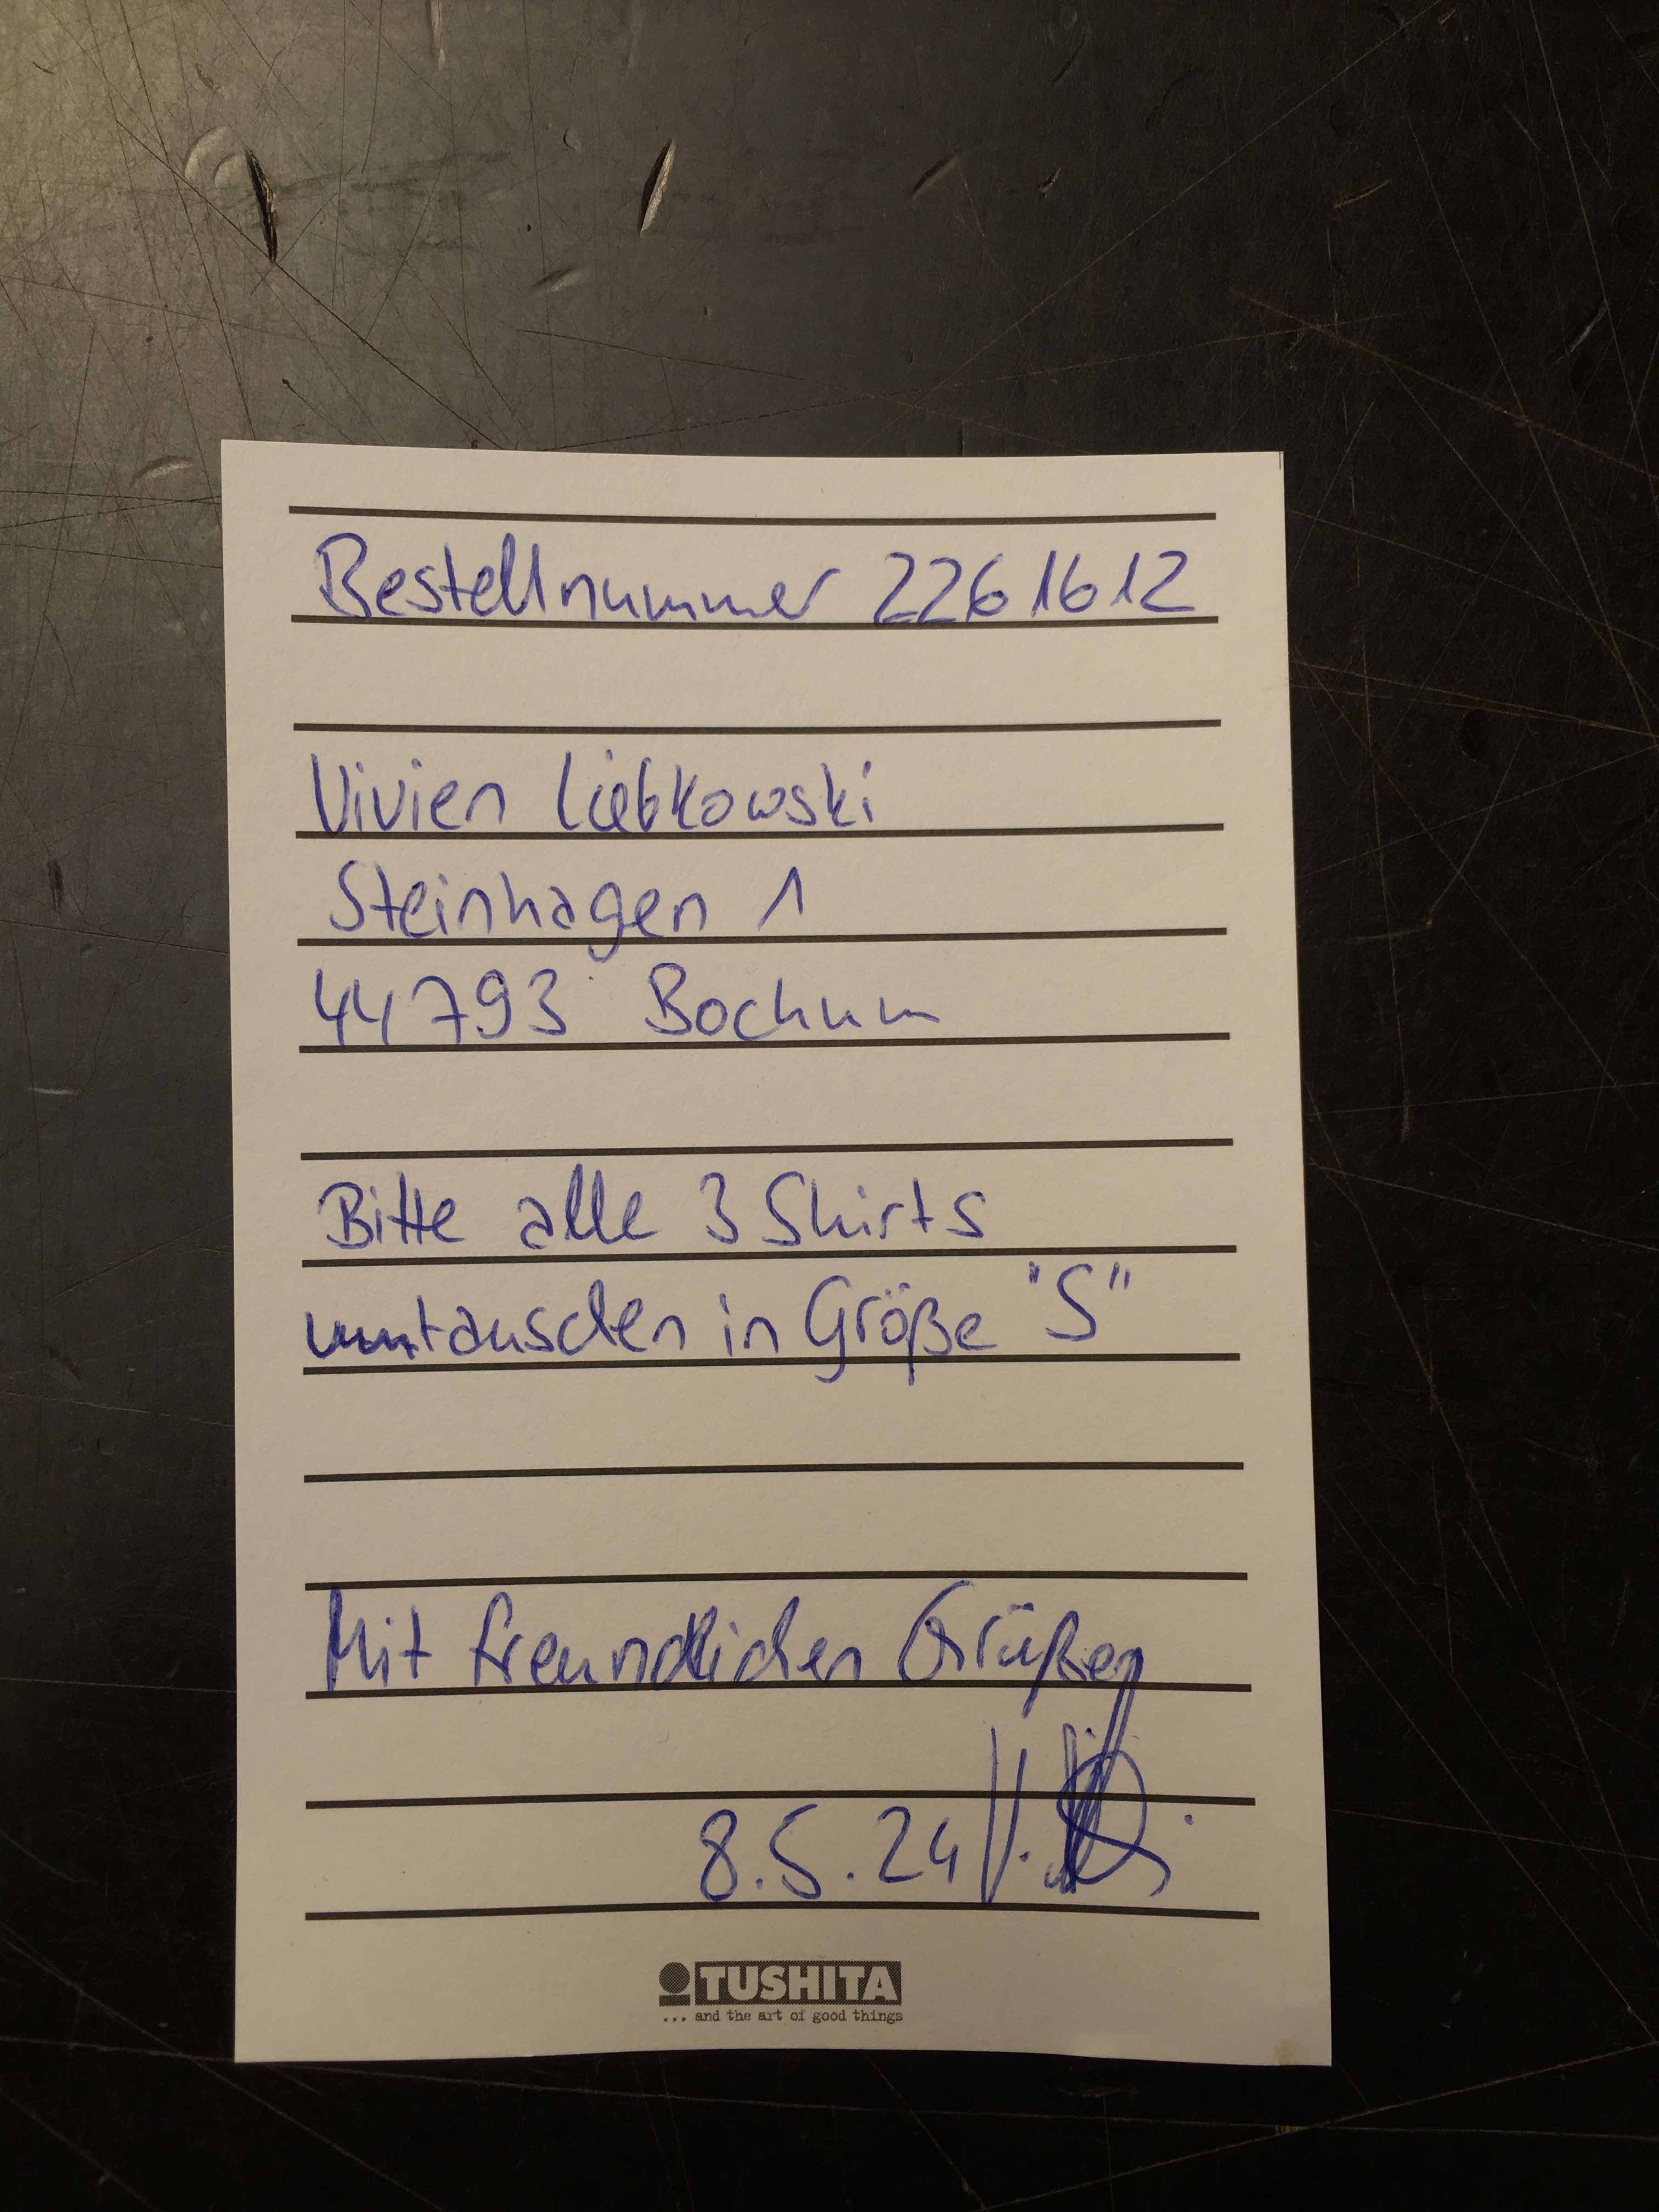 Bestellnummer 2261612
Vivien Liebkowski
Steinhagen 1
44793 Bochum
Bitte alle 3 Shirts
umtauschen in Größe "S"
Mit freundlichen Grüßen
8.5.24 V.
TUSHITA
... and the art of good things